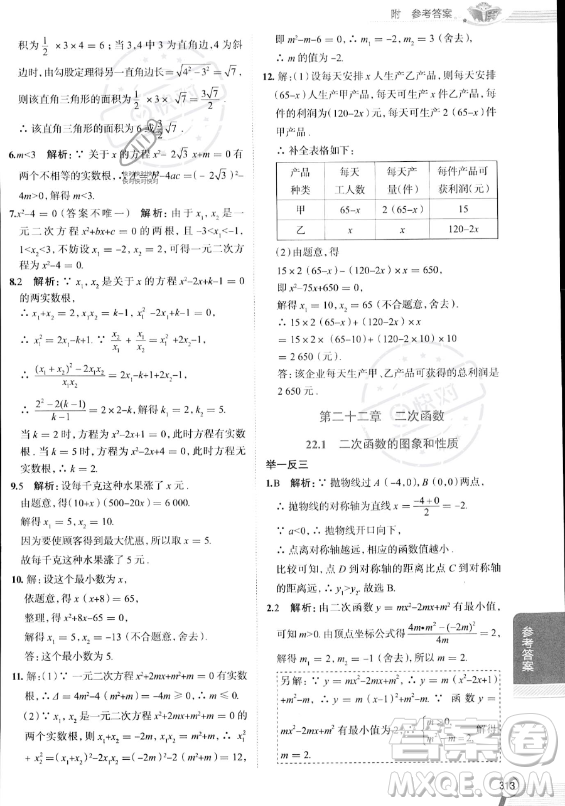 附 参考答案
积为1/2×3×4=6;当3,4中有一边为直角边,4为斜
边时,由勾股定理得另一直角边长=√(4²-3²)=√7,
则该直角三角形的面积为1/2×3×√7=3√7/2.
∴ 该直角三角形的面积为6或3/2√7.
6.m<3 解析:∵ 关于x的方程x²-2√3x+m=0有
两个不相等的实数根,∴
4m>0,解得m<3.
7.x²-4=0(答案不唯一) 解析:由于x₁,x₂是一
元二次方程x²+bx+c=0的两根,且-3<x₁<-
1,1<x₂<3,不妨令x₁=-2,x₂=2,此时一元二次方
程为x²-4=0.
8.2 解析:∵ x₁,x₂是关于x的方程x²-2x+k-1=0
的两实数根,
∴ x₁+x₂=2,x₁x₂=k-1,x₁²-2x₁+k-1=0,
∴ x₁²=2x₁-k+1.∵ x₂/x₁+x₁/x₂=x₁²+2x₂-1,
∴ ((x₁+x₂)²-2x₁x₂)/(x₁x₂)=2(x₁+x₂)-k,
∴ (2²-2(k-1))/(k-1)=4-k,解得k=2或k=5.
当k=2时,关于x的方程为x²-2x+1=0,Δ≥0,符合题意;
当k=5时,关于x的方程为x²-2x+4=0,Δ<0,方程无实数解,不符合题意.
∴ k=2.
9.5 解析:设每千克这种水果涨了x元,
由题意,得(10+x)(500-20x)=6 000.
解得x₁=5,x₂=10.
因为要使顾客得到最大优惠,所以应取x=5.
故每千克这种水果涨了5元.
10.解:设这个最小数为x,
依题意,得x(x+8)=65,
整理,得x²+8x-65=0,
解得x₁=5,x₂=-13(舍去).
答:这个最小数为5.
11.解:(1)∵ 一元二次方程x²+2mx+m²+m=0有实
数根,∴ Δ=4m²-4(m²+m)≥0,∴ m≤0.
(2)∵ x的一元二次方程x²+2mx+m²+m=0的两个
实数根,x₁+x₂=-2m,x₁x₂=m²+m,∴ x₁²+
x₂²=(x₁+x₂)²-2x₁x₂=(-2m)²-2(m²+m)=12,
即m²-m-6=0,∴ m=-2或m=3(舍去),
∴ m的值为-2.
12.解:(1)设每天安排x人生产乙产品,则每天安排
(65-x)人生产甲产品,每天可生产x件乙产品,每
件的利润为(120-2x)元,每天可生产2(65-x)件
甲产品.
∴ 补全表格如下:
产品种类 每天工人数 每天产量(件) 每件产品可获利润(元)
甲 65-x 2(65-x) 15
乙 x x 120-2x
(2)由题意,得
15×2(65-x)=x(120-2x)+650,
即x²-75x+650=0,
解得x₁=10,x₂=65(不合题意,舍去).
∴ 15×2(65-x)+(120-2x)x
=15×2×(65-10)+(120-2×10)×10
=2 650.
答:该企业每天生产甲、乙产品可获得的总利润是
2 650元.
第二十二章 二次函数
22.1 二次函数的图象和性质
举一反三
1.B 解析:∵ 抛物线过A(-4,0),B(0,0),
∴ 抛物线的对称轴为直线x=(-4+0)/2=-2.
∵ a<0,∴ 抛物线开口向下,
∴ 点离对称轴越近,对应的函数值越大.
比较可知,点D到对称轴的距离比点C到对称轴的
距离近,∴ y₁>y₂.故选B.
2.2 解析:由二次函数y=mx²-2mx+m²有最小值,
可知m>0.由顶点坐标公式得(4m·m²-(-2m)²)/4m=2,
解得m=2或m=-1(舍去).所以m=2.
另解:∵ y=mx²-2mx+m²=m(x²-2x+1)
+m²-m,∴ y=m(x-1)²+m²-m.∵ 函数y=
mx²-2mx+m²有最小值为2,∴
解得m=2.
参考答案
313
答案圈
MXQE.COM
快对